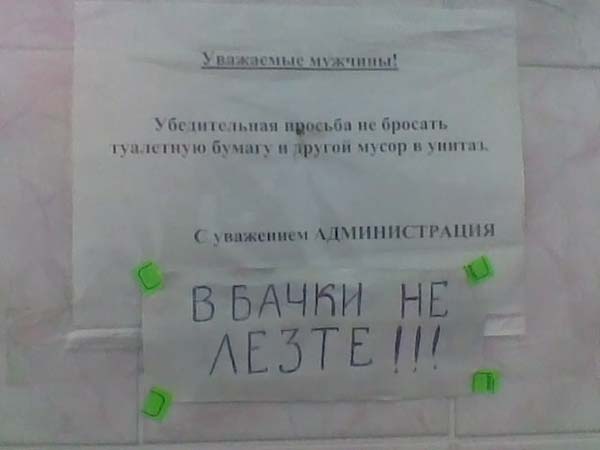 Уважаемые мужчины!
Убедительная просьба не бросать
туалетную бумагу и другой мусор в унитаз.
С уважением АДМИНИСТРАЦИЯ
В БАЧКИ НЕ
ЛЕЗТЕ!!!